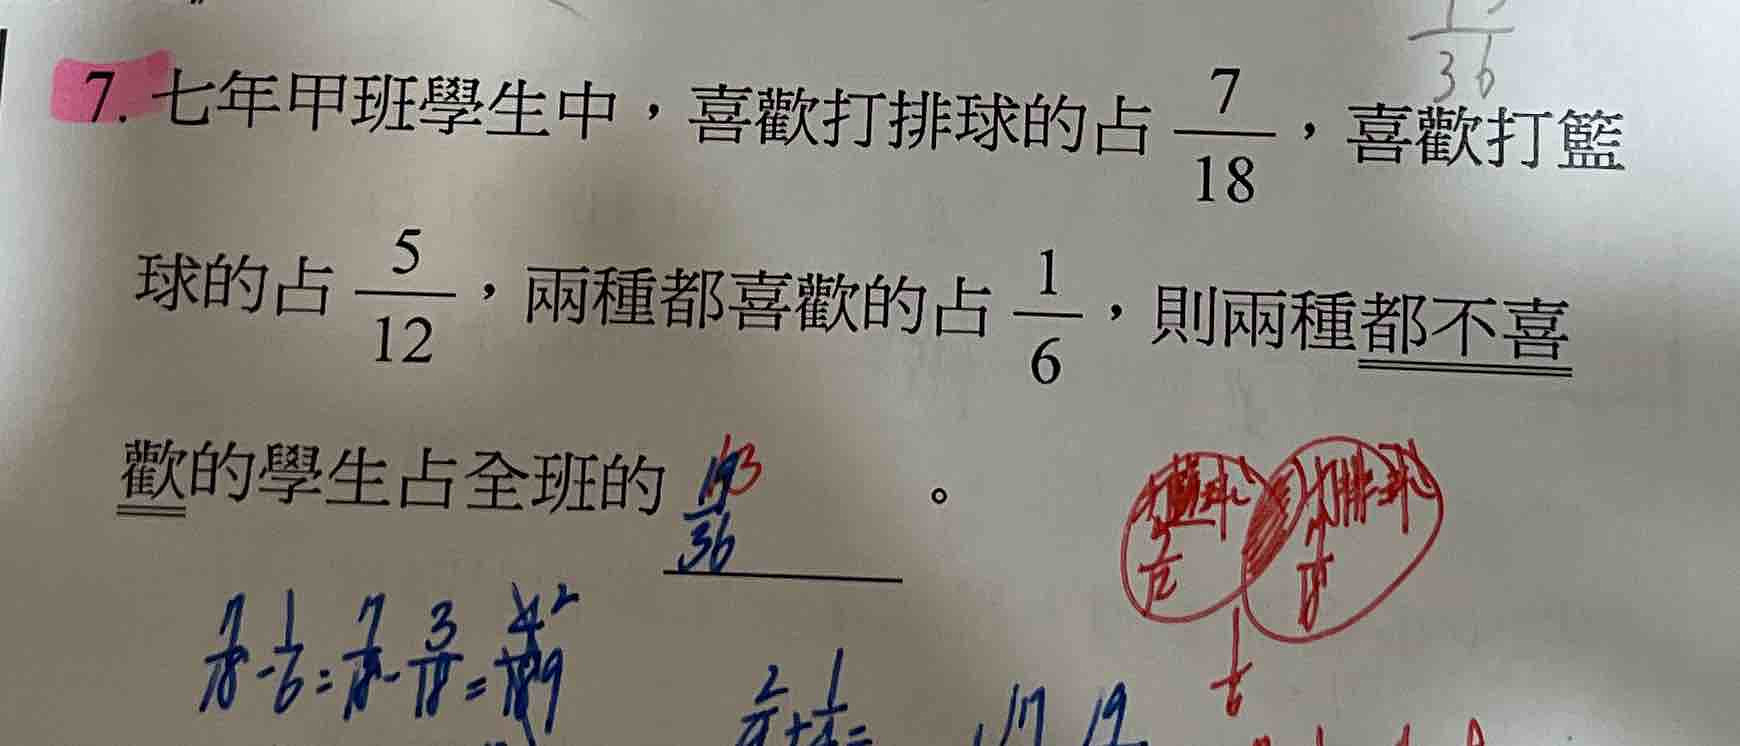 36
7. 七年甲班學生中，喜歡打排球的占 7/18，喜歡打籃
球的占 5/12，兩種都喜歡的占 1/6，則兩種都不喜
歡的學生占全班的 13/36。
7/18 - 1/6 = 7/18 - 3/18 = 4/18 2/9
5/12 7/18
1/6
17 19